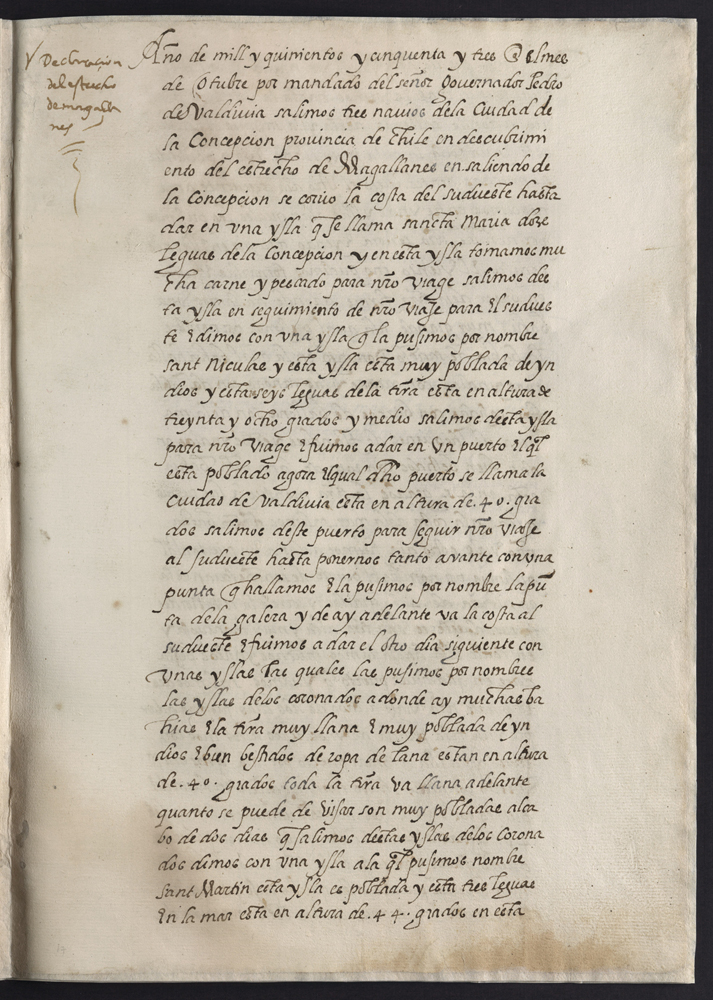 Declaracion
del estrecho
de magalla
nes
Año de mill y quinientos y cinquenta y tres el mes
de Otubre por mandado del señor Governador Pedro
de Valdivia salimos tres navios dela Ciudad de
la Concepcion provincia de Chile en descubrimi
ento del estrecho de Magallanes en saliendo de
la Concepcion se corrio la costa del sudueste hasta
dar en vna ysla q se llama sancta Maria doze
leguas dela Concepcion y en esta ysla tomamos mu
cha carne y pescado para nro viage salimos des
ta ysla en seguimiento de nro viaje para el sudues
te e dimos con vna ysla q la pusimos por nombre
sant Niculas y esta ysla esta muy poblada de yn
dios y esta seys leguas dela trra esta en altura de
treynta y ocho grados y medio salimos desta ysla
para nro viage e fuimos a dar en vn puerto el ql
esta poblado agora el qual dho puerto se llama la
Ciudad de Valdivia esta en altura de .40. gra
dos salimos deste puerto para seguir nro viaje
al sudueste hasta ponernos tanto avante con vna
punta q hallamos e la pusimos por nombre la pũ
ta dela galera y de ay adelante va la costa al
sudueste e fuimos a dar el otro dia siguiente con
vnas yslas las quales las pusimos por nombres
las yslas delos coronados adonde ay muchas ba
hias e la trra muy llana e muy poblada de yn
dios e bien bestidos de ropa de lana estan en altura
de .40. grados toda la trra va llana adelante
quanto se puede de visar son muy pobladas alca
bo de dos dias q salimos destas yslas delos Corona
dos dimos con vna ysla ala ql pusimos nombre
sant Martin esta ysla es poblada y esta tres leguas
en la mar esta en altura de .44. grados en esta